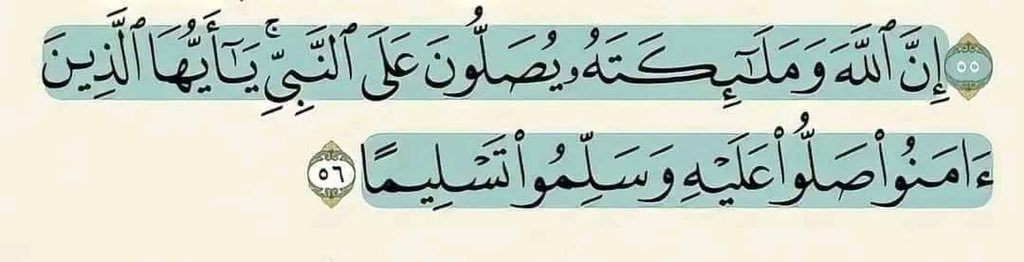 ٥٥ إِنَّ ٱللَّهَ وَمَلَـٰٓئِكَتَهُۥ يُصَلُّونَ عَلَى ٱلنَّبِىِّ ۚ يَـٰٓأَيُّهَا ٱلَّذِينَ
ءَامَنُوا۟ صَلُّوا۟ عَلَيْهِ وَسَلِّمُوا۟ تَسْلِيمًا ٥٦